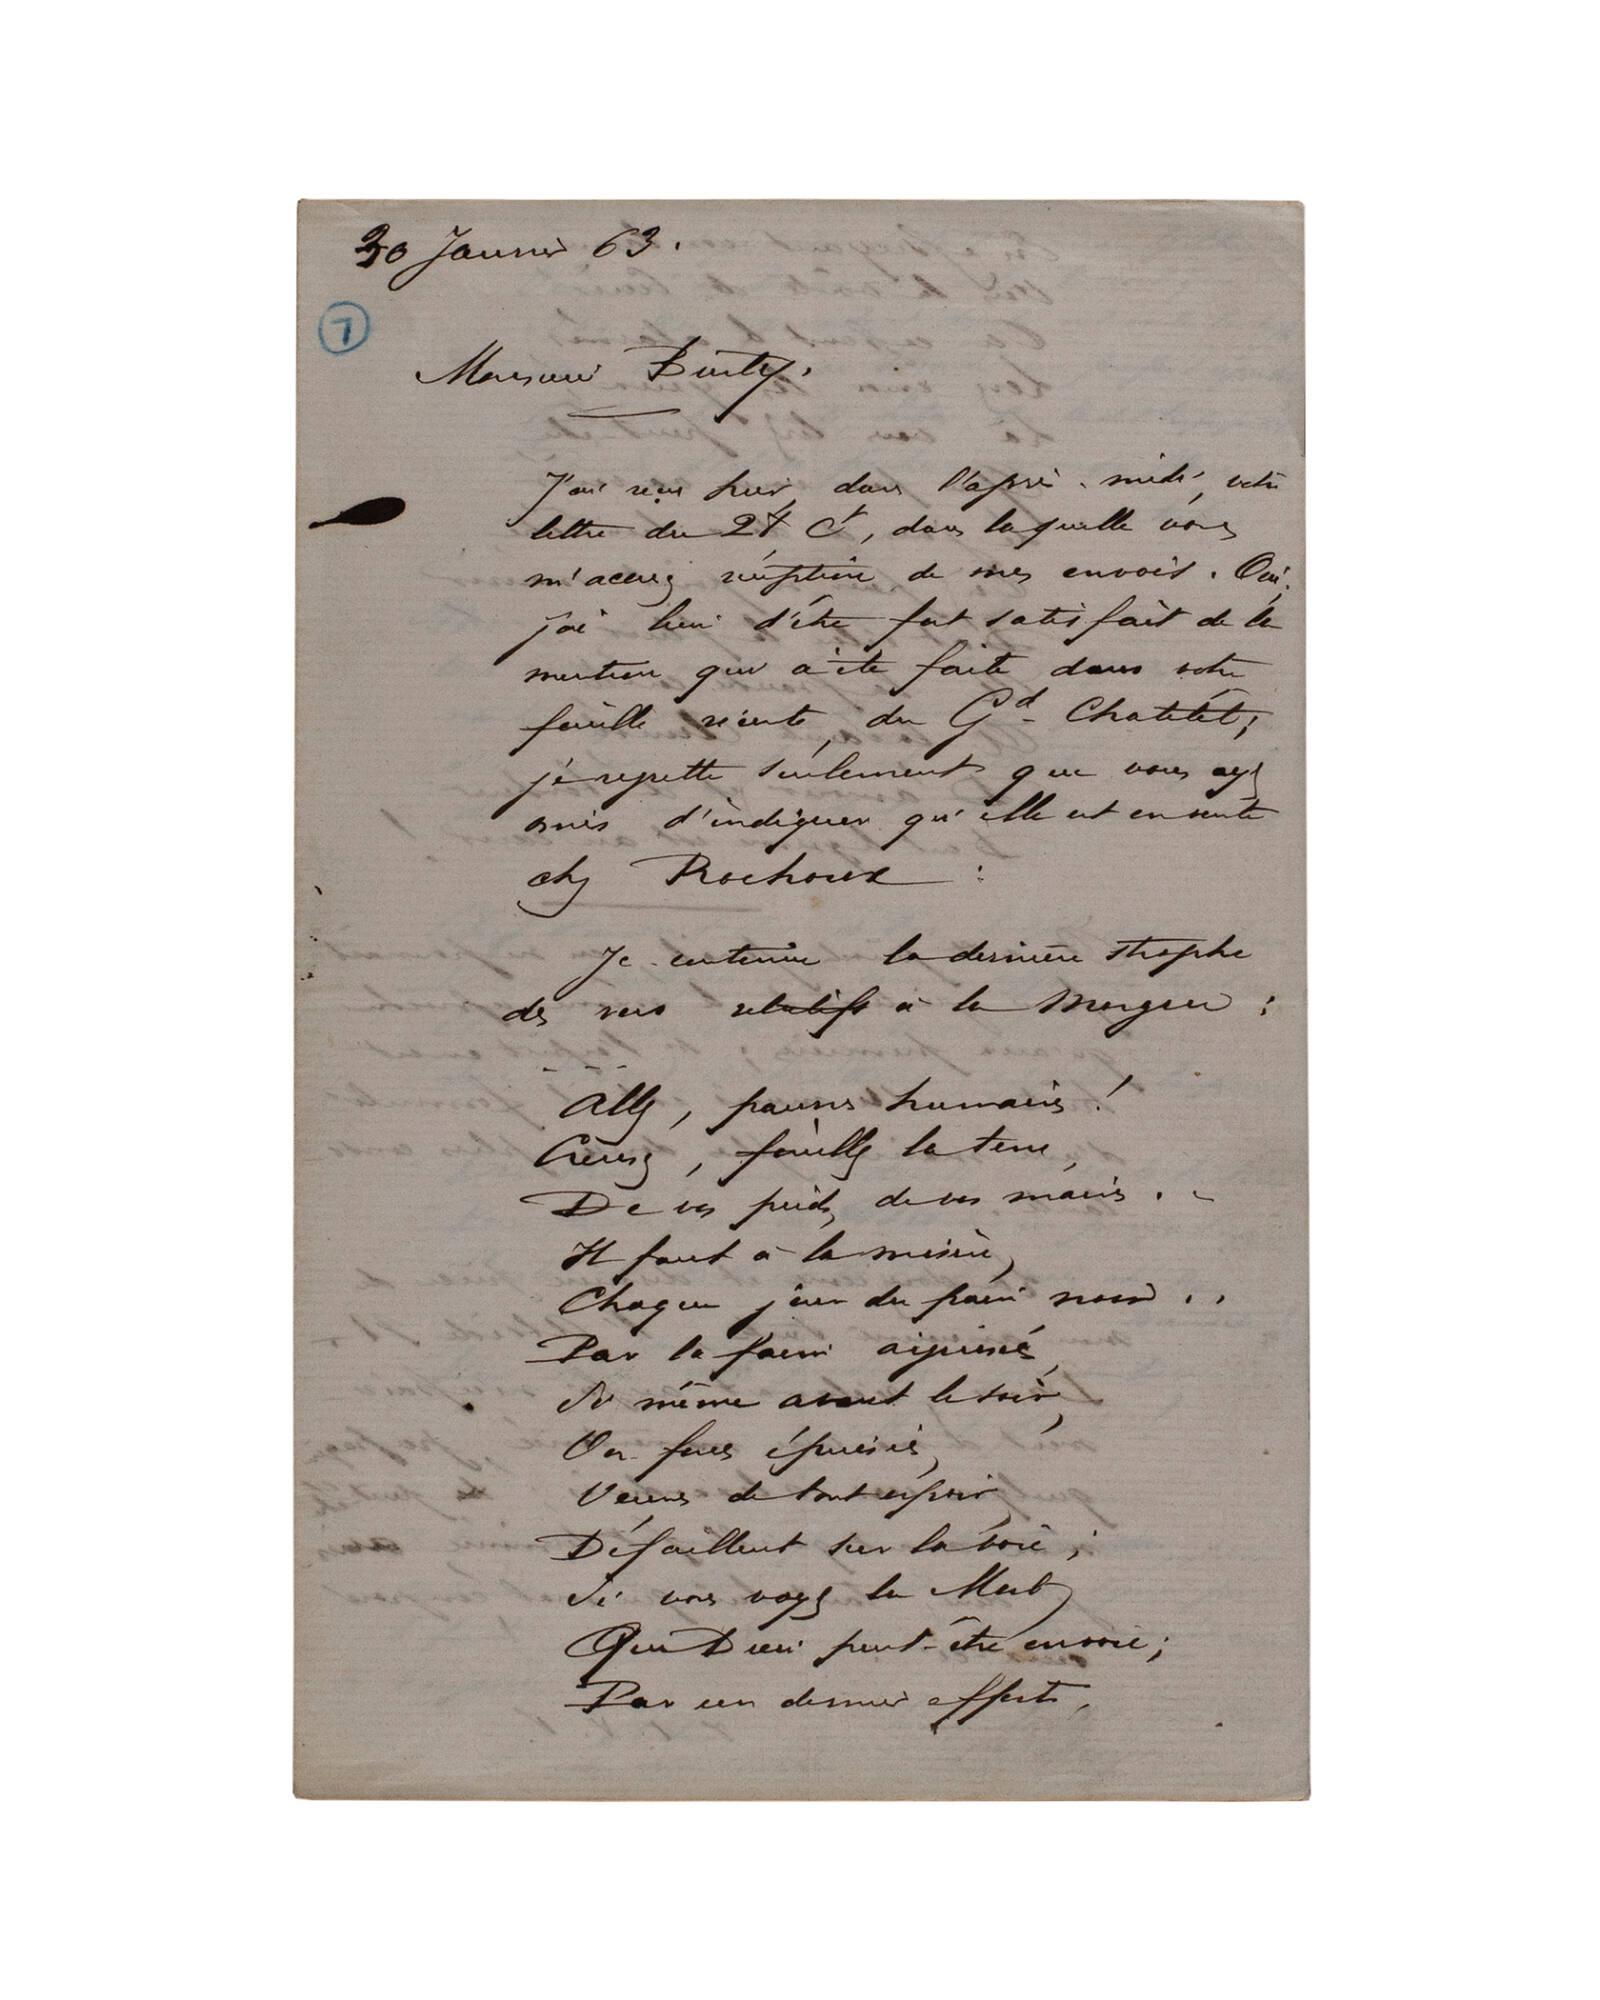 30 Janvier 63.
7
Monsieur Burty.
J'ai reçu hier, dans l'après-midi, votre
lettre du 24 Ct, dans laquelle vous
m'accusez réception de mes envois. Oui,
j'ai lieu d'être fort satisfait de la
mention qui a été faite dans votre
feuille récente, du Gd Chatelet;
je regrette seulement que vous ayez
omis d'indiquer qu'elle est en vente
chez Rochoux :
Je continue la dernière strophe
des vers relatifs à la Morgue :
Allez, pauvres humains !
Creusez, fouillez la terre,
De vos pieds, de vos mains . .
Il faut à la misère,
Chaque jour du pain noir . .
Par la faim aiguisés,
Si même avant le soir,
Vos forces épuisées,
Veuves de tout espoir,
Défaillent sur la voie ;
Si vous voyez la Mort,
Que Dieu peut-être envoie ;
Par un dernier effort,